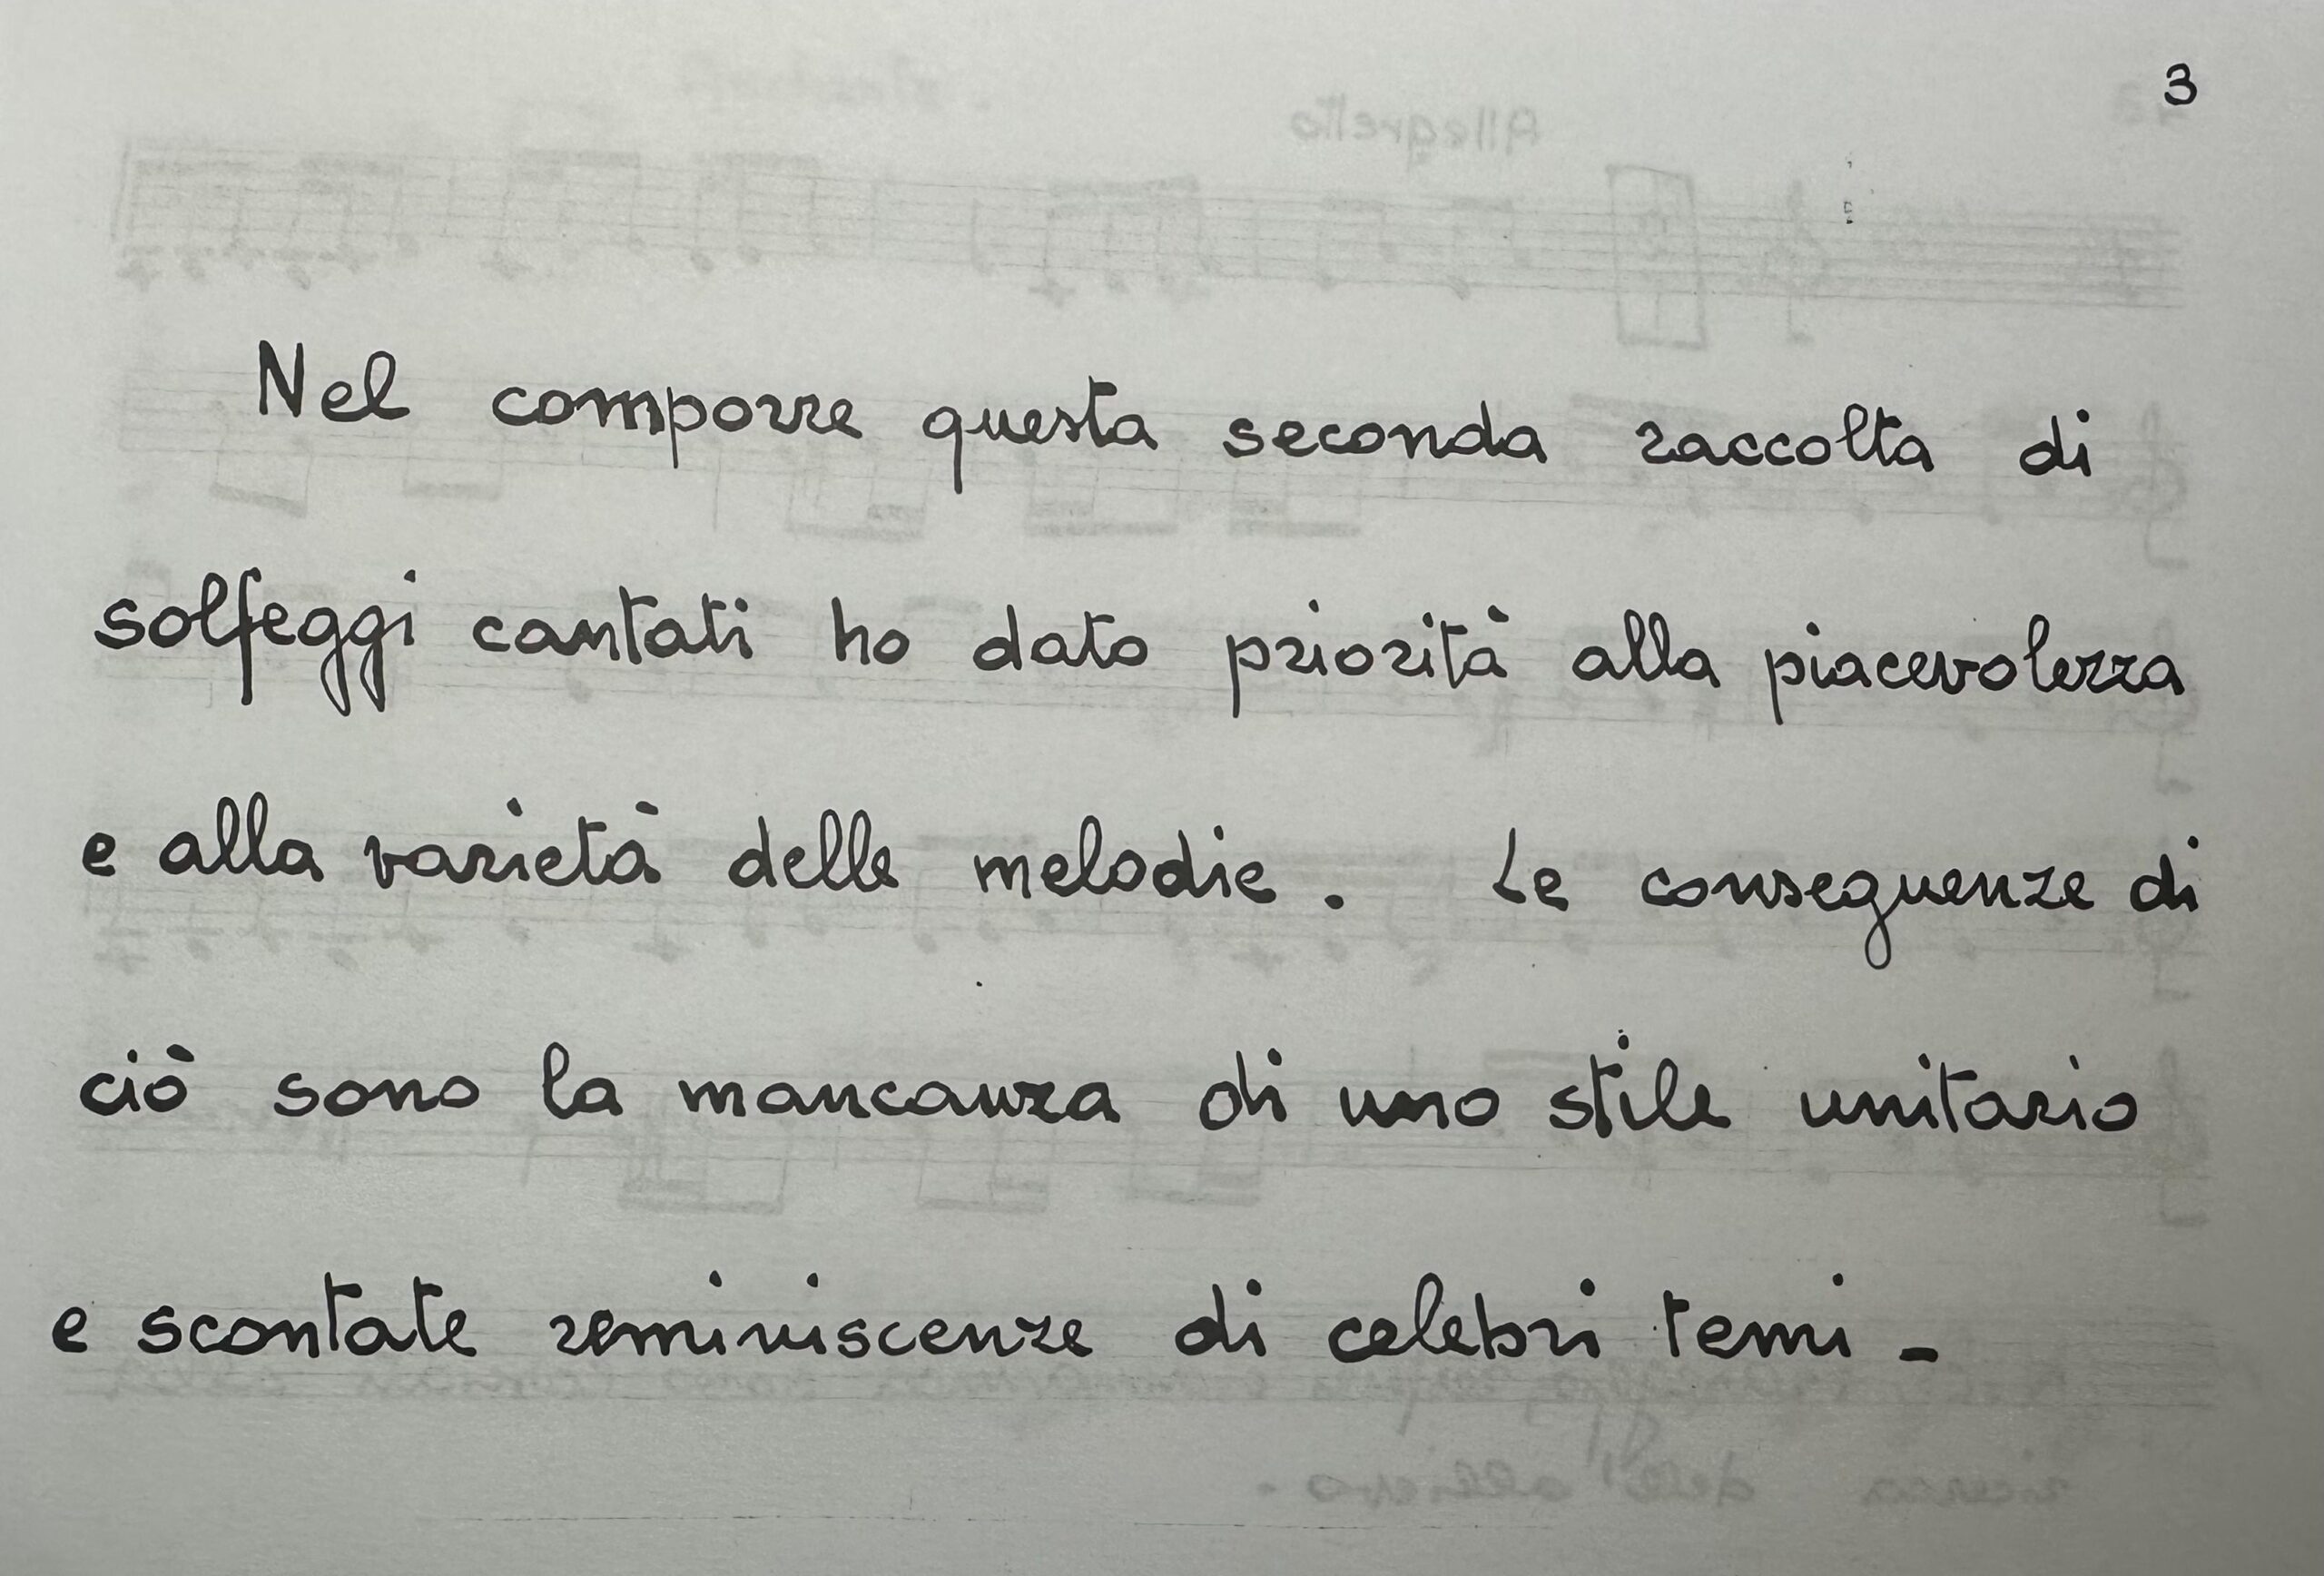 3
Allegretto
Nel comporre questa seconda raccolta di
solfeggi cantati ho dato priorità alla piacevolezza
e alla varietà delle melodie. Le conseguenze di
ciò sono la mancanza di uno stile unitario
e scontate reminiscenze di celebri temi -
dell'allievo.